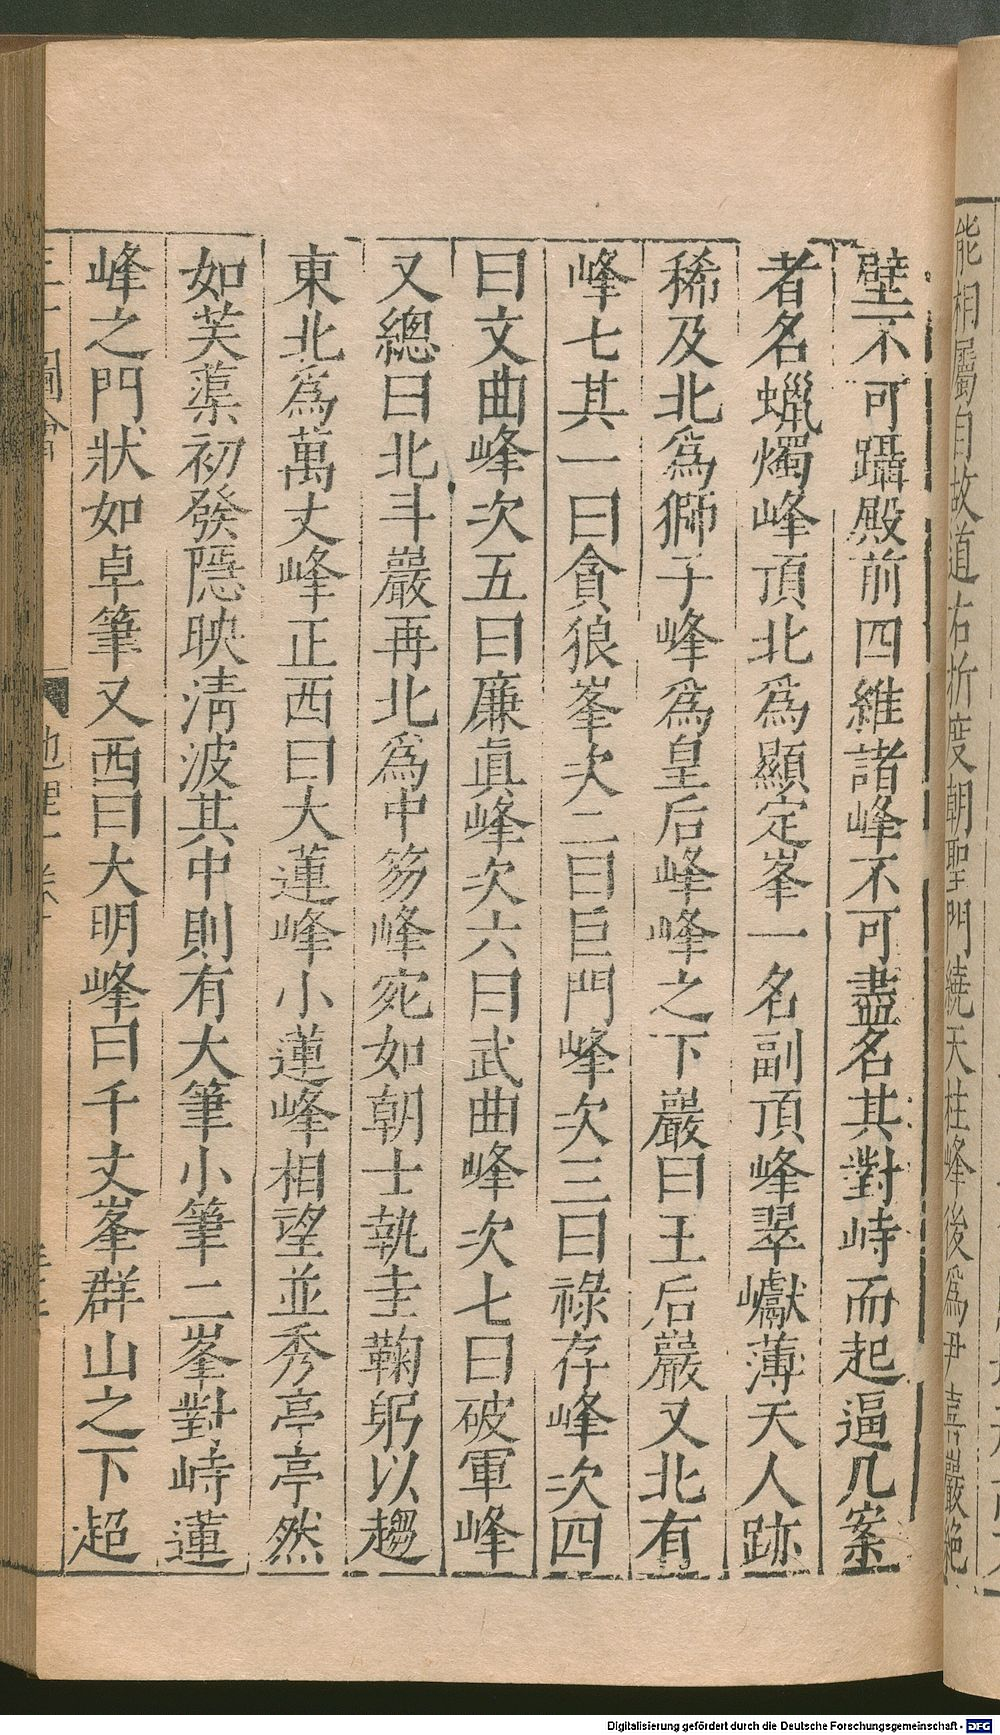 能相屬自故道右折度朝聖門繞天柱峰後爲尹喜巖絶
壁不可躡殿前四維諸峰不可盡名其對峙而起逼几案
者名蠟燭峰頂北爲顯定峯一名副頂峰翠巘薄天人跡
稀及北爲獅子峰爲皇后峰峰之下巖曰王后巖又北有
峰七其一曰貪狼峯次二曰巨門峰次三曰祿存峰次四
曰文曲峰次五曰廉眞峰次六曰武曲峰次七曰破軍峰
又總曰北斗巖再北爲中笏峰宛如朝士執圭鞠躬以趨
東北爲萬丈峰正西曰大蓮峰小蓮峰相望並秀亭亭然
如芙蕖初發隱映淸波其中則有大筆小筆二峯對峙蓮
峰之門狀如卓筆又西曰大明峰曰千丈峯群山之下超
圖會 地理
Digitalisierung gefördert durch die Deutsche Forschungsgemeinschaft - DFG